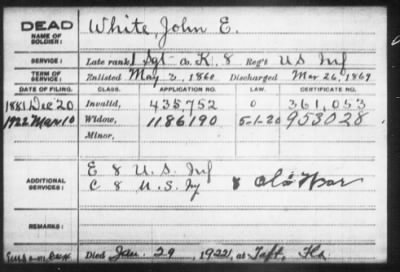 DEAD
NAME OF SOLDIER:
White, John E.
SERVICE:
Late rank 1 Sgt Co. K. 8 Reg't U S Inf
TERM OF SERVICE:
Enlisted May 2, 1860 Discharged Mar 26, 1869
DATE OF FILING. CLASS. APPLICATION NO. LAW. CERTIFICATE NO.
1881 Dec 20 Invalid, 435,752 0 361,053
1922 Mar 10 Widow, 1186190 5-1-20 953028
Minor,
ADDITIONAL SERVICES:
E 8 U.S. Inf
C 8 U.S. Inf
REMARKS:
Died Jan. 29, 1922, at Taft, Fla